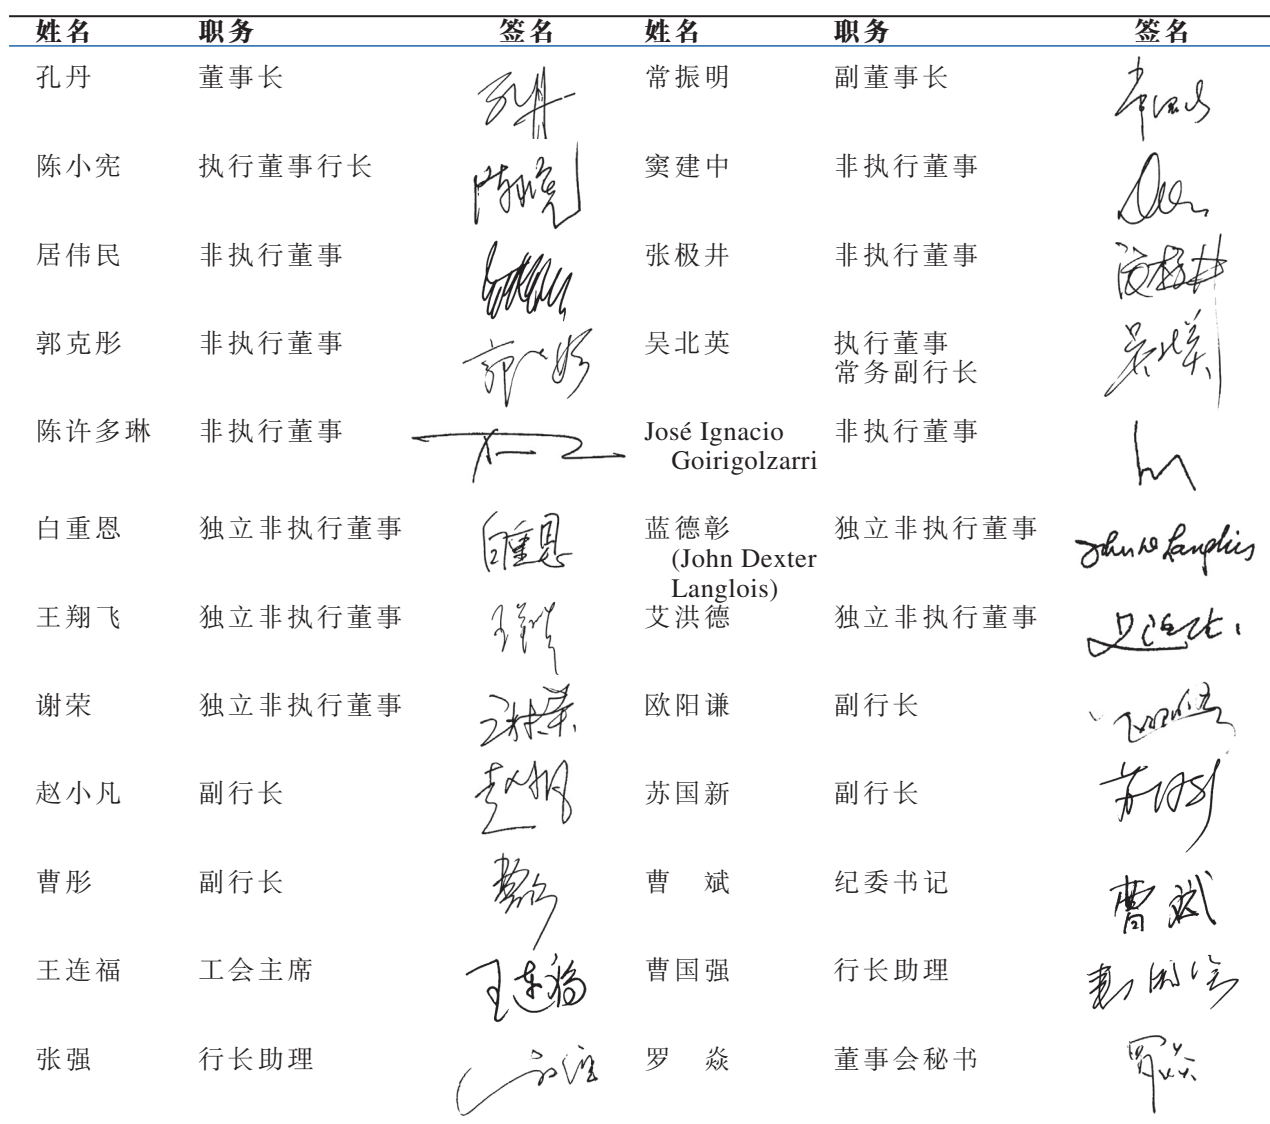 姓名 职务 签名 姓名 职务 签名
孔丹 董事长 常振明 副董事长
陈小宪 执行董事行长 窦建中 非执行董事
居伟民 非执行董事 张极井 非执行董事
郭克彤 非执行董事 吴北英 执行董事
常务副行长
陈许多琳 非执行董事 José Ignacio 非执行董事
Goirigolzarri
白重恩 独立非执行董事 白重恩 蓝德彰 独立非执行董事
(John Dexter
Langlois)
王翔飞 独立非执行董事 艾洪德 独立非执行董事
谢荣 独立非执行董事 欧阳谦 副行长
赵小凡 副行长 苏国新 副行长
曹彤 副行长 曹 斌 纪委书记 曹斌
王连福 工会主席 王连福 曹国强 行长助理
张强 行长助理 罗 焱 董事会秘书 罗焱